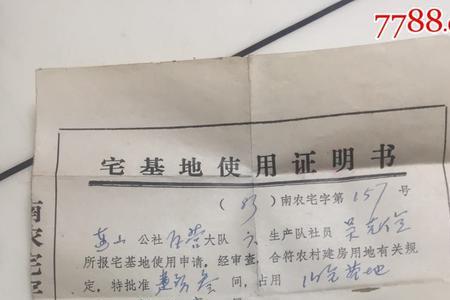 7788.c
宅基地使用证明书
(83)南农宅字第157号
公社 大队六生产队社员
所报宅基地使用申请,经审查,合符农村建房用地有关规
定,特批准建房叁间,占用 地
南农宅字